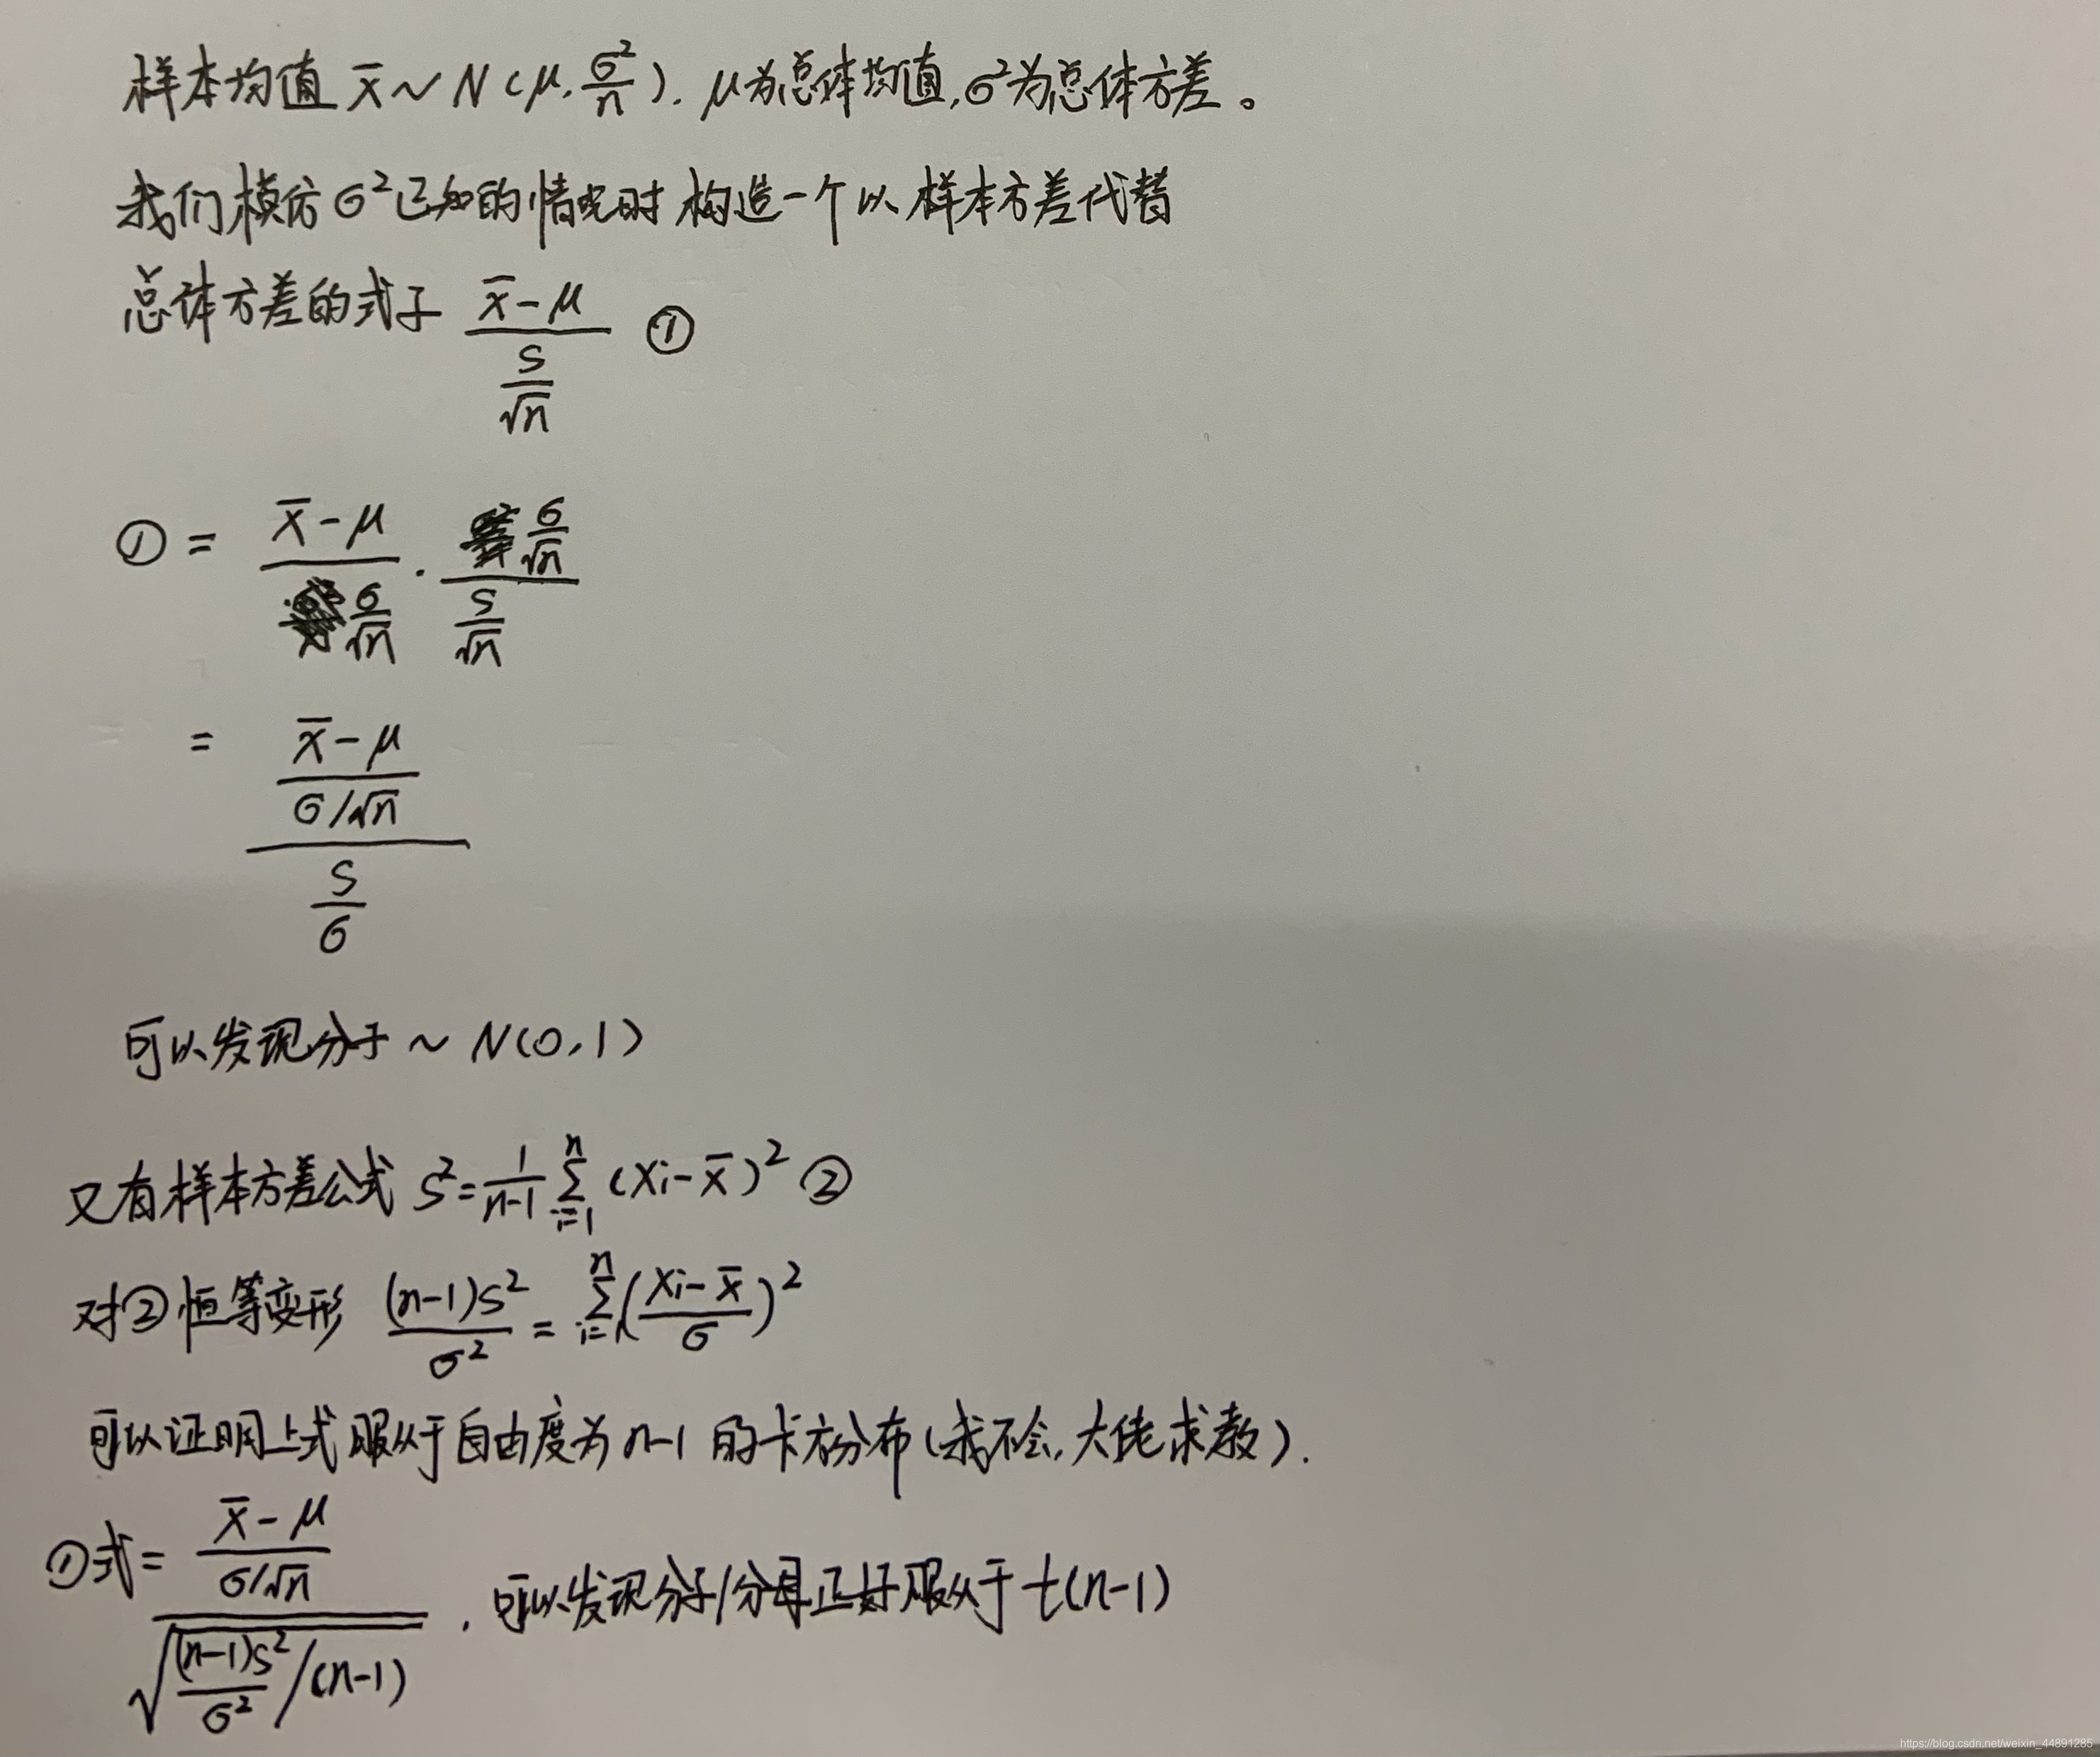 样本均值 x̄ ~ N(μ, σ²/n). μ为总体均值,σ²为总体方差。
我们模仿σ²已知的情况时 构造一个以样本方差代替
总体方差的式子 (x̄-μ)/(s/√n) ①
① = (x̄-μ)/(σ/√n) · (σ/√n)/(s/√n)
= ((x̄-μ)/(σ/√n))/(s/σ)
可以发现分子 ~ N(0,1)
又有样本方差公式 S²=1/(n-1) Σ_{i=1}^{n} (xi-x̄)² ②
对②恒等变形 (n-1)S²/σ² = Σ_{i=1}^{n} ((xi-x̄)/σ)²
可以证明上式服从于自由度为n-1 的卡方分布(我不会,大佬求教).
①式= ((x̄-μ)/(σ/√n))/√((n-1)S²/σ²/(n-1)) . 可以发现分子/分母正好服从于t(n-1)
https://blog.csdn.net/weixin_44891285